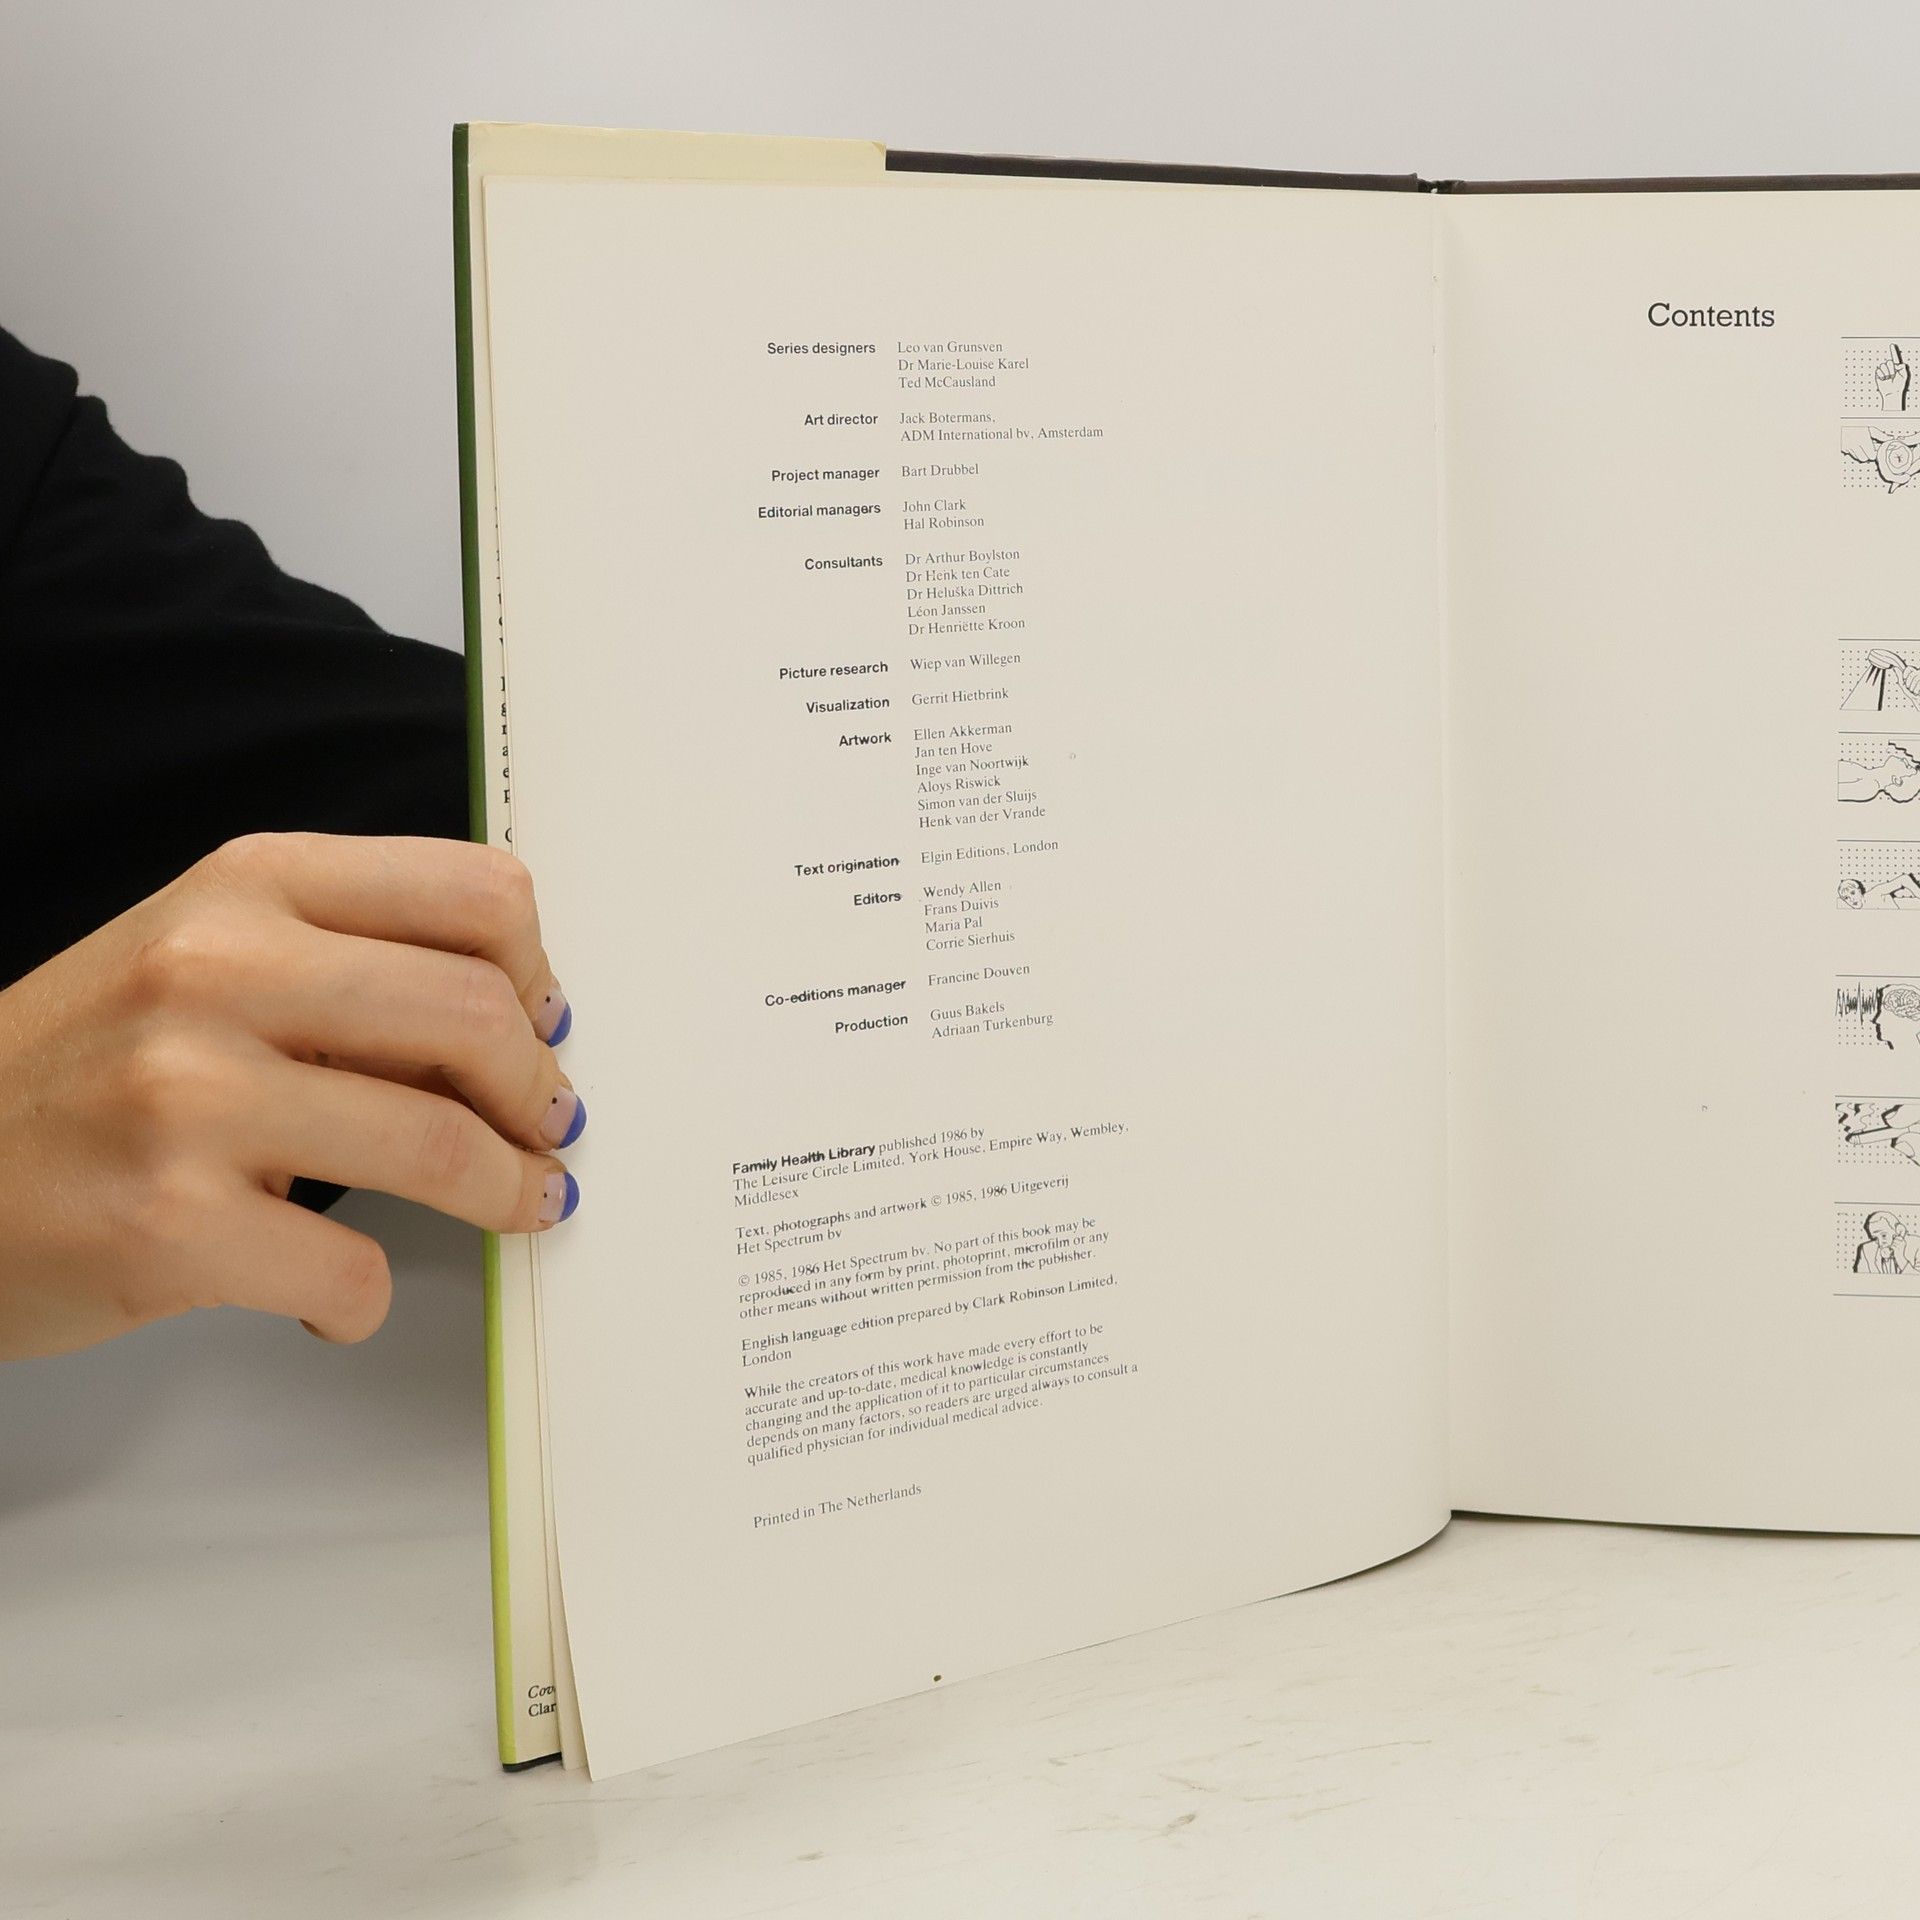 Series designers Leo van Grunsven
Dr Marie-Louise Karel
Ted McCausland
Art director Jack Botermans,
ADM International bv, Amsterdam
Project manager Bart Drubbel
Editorial managers John Clark
Hal Robinson
Consultants Dr Arthur Boylston
Dr Henk ten Cate
Dr Heluška Dittrich
Léon Janssen
Dr Henriëtte Kroon
Picture research Wiep van Willegen
Visualization Gerrit Hietbrink
Artwork Ellen Akkerman
Jan ten Hove
Inge van Noortwijk
Aloys Riswick
Simon van der Sluijs
Henk van der Vrande
Text origination Elgin Editions, London
Editors Wendy Allen
Frans Duivis
Maria Pal
Corrie Sierhuis
Co-editions manager Francine Douven
Production Guus Bakels
Adriaan Turkenburg
Family Health Library published 1986 by
The Leisure Circle Limited, York House, Empire Way, Wembley,
Middlesex
Text, photographs and artwork © 1985, 1986 Uitgeverij
Het Spectrum bv
© 1985, 1986 Het Spectrum bv. No part of this book may be
reproduced in any form by print, photoprint, microfilm or any
other means without written permission from the publisher.
English language edition prepared by Clark Robinson Limited,
London
While the creators of this work have made every effort to be
accurate and up-to-date, medical knowledge is constantly
changing and the application of it to particular circumstances
depends on many factors, so readers are urged always to consult a
qualified physician for individual medical advice.
Printed in The Netherlands
Cov
Clar
Contents